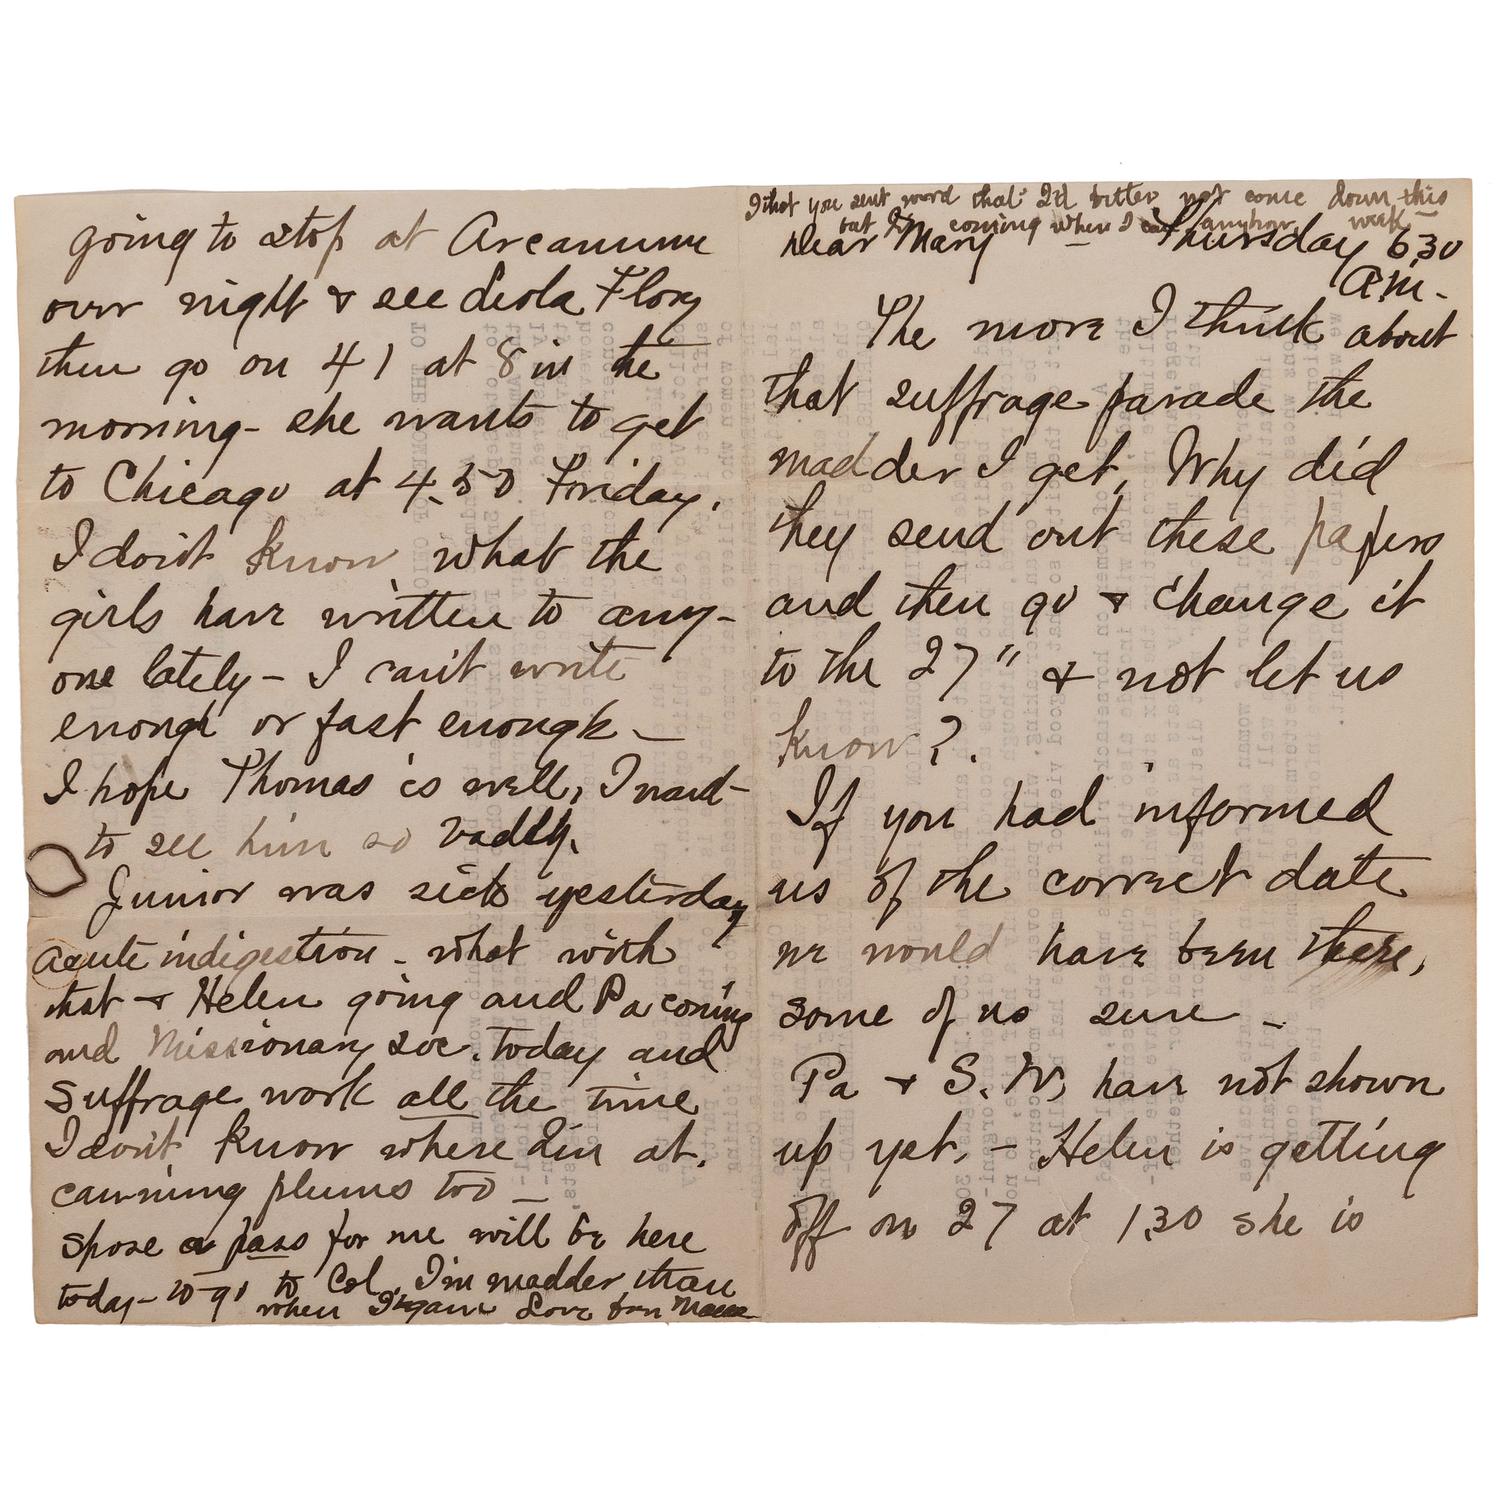 that you sent word that I'd better not come down this
but I'm coming when I can anyhow week—
Dear Mary — Thursday 630
am.
The more I think about
that suffrage parade the
madder I get, Why did
they send out these papers
and then go & change it
to the 27" & not let us
know?.
If you had informed
us of the correct date
we would have been there,
some of us sure –
Pa & S. W, have not shown
up yet. – Helen is getting
off on 27 at 1.30 she is
going to stop at Arcanum
over night & see Leola Flory
then go on 41 at 8 in the
morning – she wants to get
to Chicago at 4.50 Friday.
I don't know what the
girls have written to any-
one lately – I can't write
enough or fast enough –
I hope Thomas is well, I want
to see him so badly.
Junior was sick yesterday
acute indigestion – what with
that & Helen going and Pa coming
and Missionary Soc. today and
Suffrage work all the time
I don't know where I'm at.
canning plums too –
Spose a pass for me will be here
today – to go to Col. I'm madder than
when I began Love from Mama